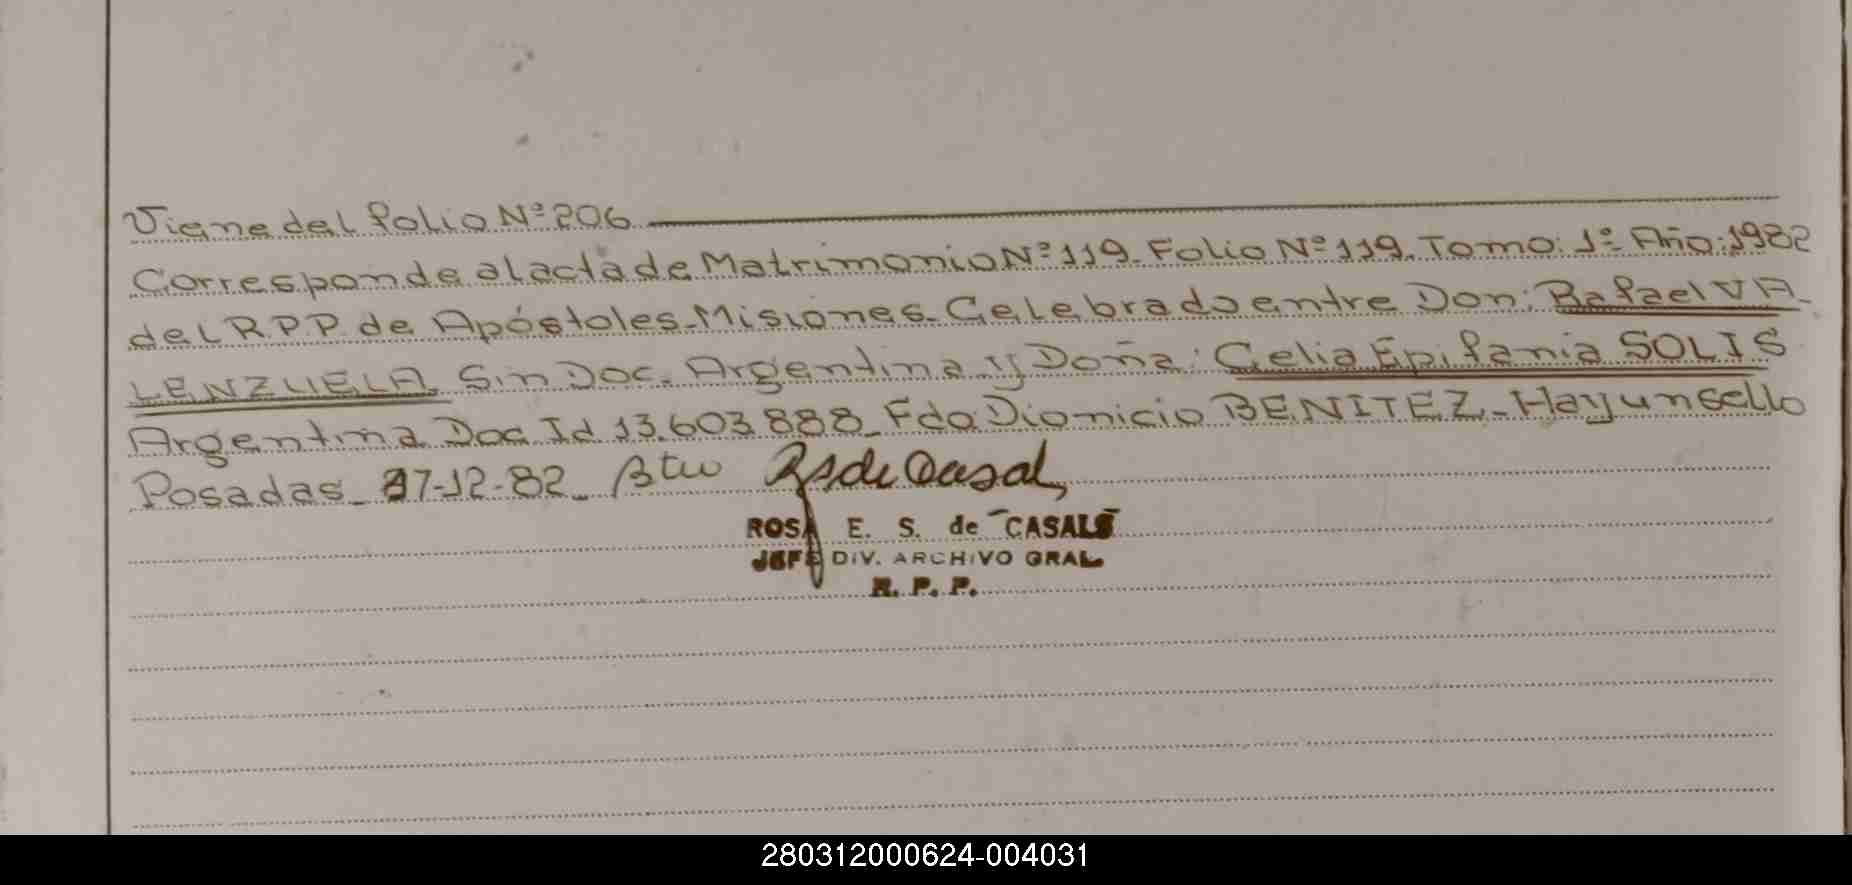 Viene del folio Nº 206
Corresponde al acta de Matrimonio Nº 119. Folio Nº 119. Tomo: 1º Año: 1982
del R.P.P. de Apóstoles-Misiones-Celebrado entre Don: Rafael VA-
LENZUELA. Sin Doc. Argentina y Doña: Celia Epifania SOLIS
Argentina Doc Id 13.603.888_Fdo Dionicio BENITEZ_Hay un sello
Posadas_27-12-82_
ROSA E. S. de CASALS
JEFE DIV. ARCHIVO GRAL
R. P. P.
280312000624-004031